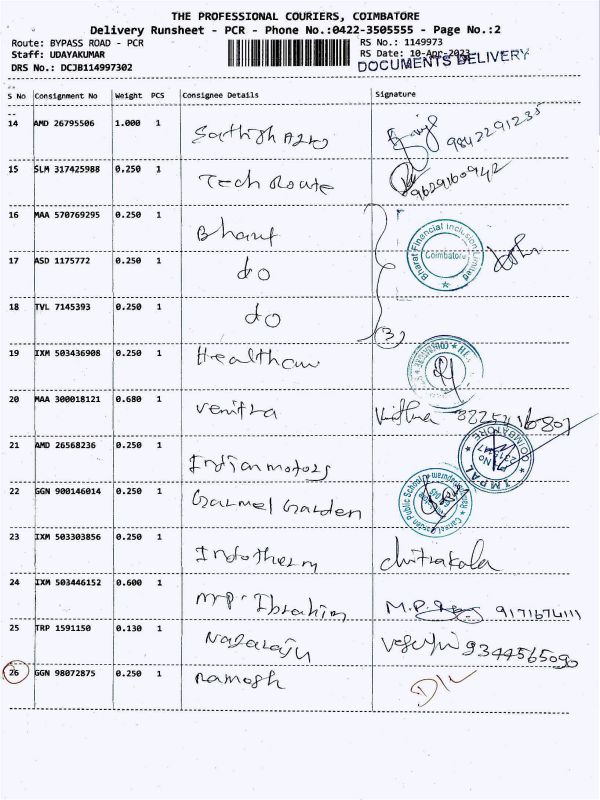 THE PROFESSIONAL COURIERS, COIMBATORE
Delivery Runsheet - PCR - Phone No.:0422-3505555 - Page No.:2
Route: BYPASS ROAD - PCR
RS No.: 1149973
Staff: UDAYAKUMAR
RS Date: 10-Apr-2023
DRS No.: DCJB114997302
DOCUMENTS DELIVERY
S No Consignment No Weight PCS Consignee Details Signature
14 AMD 26795506 1.000 1 9842291235
15 SLM 317425988 0.250 1 Tech Route 9629160942
16 MAA 570769295 0.250 1 Bharat
Bharat Financial Inclusion Limited
Coimbatore
17 ASD 1175772 0.250 1 do
18 TVL 7145393 0.250 1 do
(3)
19 IXM 503436908 0.250 1
20 MAA 300018121 0.680 1
21 AMD 26568236 0.250 1 Indian motors
IMPAL COIMBATORE
22 GGN 900146014 0.250 1 Carmel Garden
Public School
23 IXM 503303856 0.250 1 Indotherm chitrakala
24 IXM 503446152 0.600 1 M.P. Ibrahim M.P.
25 TRP 1591150 0.130 1 Nagaraju 9344565090
26 GGN 98072875 0.250 1 Ramesh